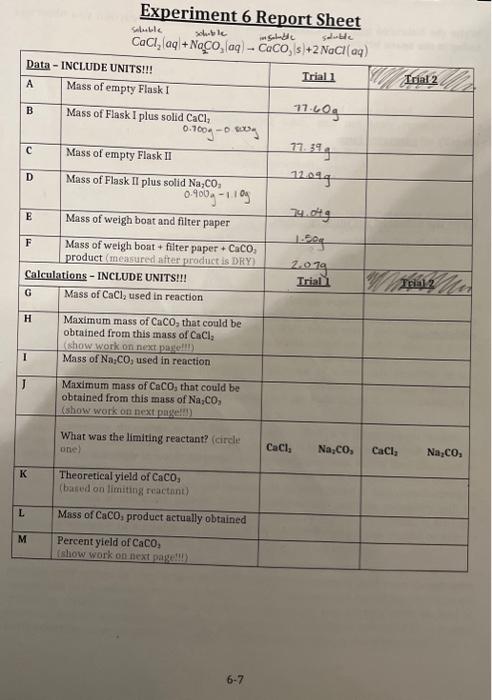 Experiment 6 Report Sheet
soluble soluble insoluble soluble
CaCl₂(aq) + Na₂CO₃(aq) → CaCO₃(s) + 2 NaCl(aq)
Data – INCLUDE UNITS!!! Trial 1 Trial 2
A Mass of empty Flask I 77.60g
B Mass of Flask I plus solid CaCl₂
0.700g - 0.800g
77.39g
C Mass of empty Flask II 72.09g
D Mass of Flask II plus solid Na₂CO₃
0.900g - 1.10g
74.04g
E Mass of weigh boat and filter paper 1.50g
F Mass of weigh boat + filter paper + CaCO₃
product (measured after product is DRY) 2.07g
Calculations – INCLUDE UNITS!!! Trial 1 Trial 2
G Mass of CaCl₂ used in reaction
H Maximum mass of CaCO₃ that could be
obtained from this mass of CaCl₂
(show work on next page!!!)
I Mass of Na₂CO₃ used in reaction
J Maximum mass of CaCO₃ that could be
obtained from this mass of Na₂CO₃
(show work on next page!!!)
What was the limiting reactant? (circle
one) CaCl₂ Na₂CO₃ CaCl₂ Na₂CO₃
K Theoretical yield of CaCO₃
(based on limiting reactant)
L Mass of CaCO₃ product actually obtained
M Percent yield of CaCO₃
(show work on next page!!!)
6-7